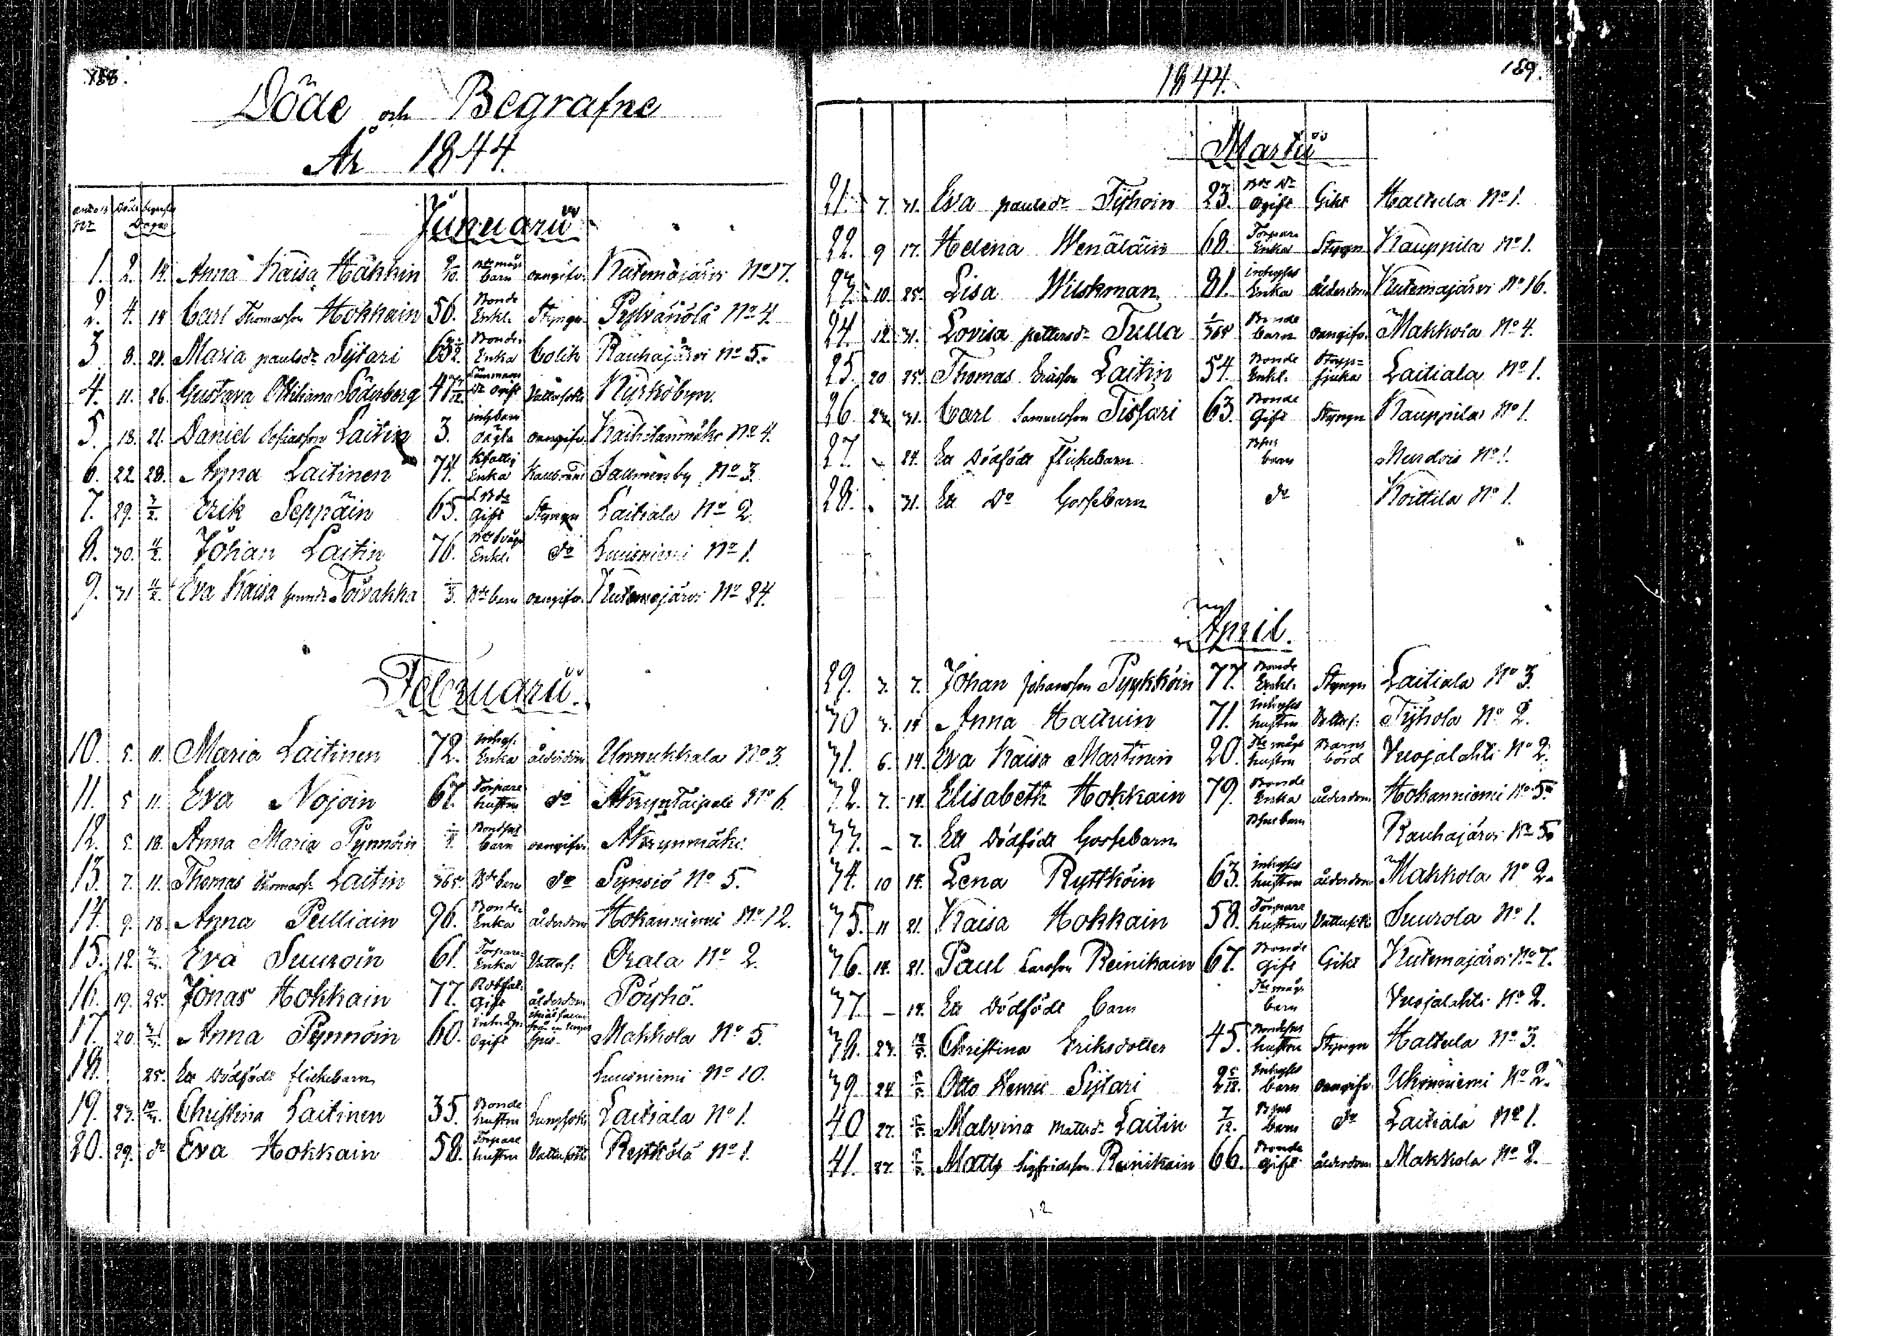 188.
Döde och Begrafne
År 1844.
Januarii
1. 2. 14. Anna Kaisa Häkkin barn oangifv. Kutemajärvi No 17.
2. 4. 14 Carl Thomasson Hokkain 56. Bonde Enkl. Styngn Pylvänälä No 4.
3 8. 21. Maria paulsdr Sysari Bonde Enka Colik Rauhajärvi No 5.
4. 11. 26. Gustava Ottiliana Söderberg ogift Vattusot Kyrkobyn.
5. 18. 21. Daniel Laitin 3. oägta oangifv. No 4.
6. 22. 28. Anna Laitinen 74. Enka No 3.
7. 29. 4/2. Erik Seppäin 65. Gift Styngn Laitiala No 2.
8. 30. 4/2. Johan Laitin 76. Enkl. do Luusniemi No 1.
9. 31 4/2. Eva Kaisa Toivakka barn oangifv. Kutemajärvi No 24.
Februarii
10. 5. 11. Maria Laitinen 72. Inhys. Enka ålderdom Ummukkala No 3.
11. 5 11. Eva Nojoin 67. Torpare hustru do Taipale No 6.
12. 5. 18. Anna Maria Pynnöin barn oangifv.
13. 7. 11. Thomas Thomass. Laitin barn do Synsiö No 5.
14. 9. 18. Anna Pelliain 96. Bonde Enka ålderdom Hokanniemi No 12.
15. 12. Eva Suuroin 61. Torpare Enka Vattus. Orala No 2.
16. 19. 25. Jonas Hokkain 77. Gift ålderdom Pöyhö.
17. 20. Anna Pynnöin 60. Ogift Makkola No 5.
18. 25. Ett Dödfödt flickebarn Luusniemi No 10.
19. 23. 10/3. Christina Laitinen 35. Bonde hustru Lungsot Laitiala No 1.
20. 29. do Eva Hokkain 58. Torpare hustru Vattusot Ryttkölä No 1.
1844.
189.
Martii
21. 7. 31. Eva paulsdr Tyhoin 23. Ogift Gikt Haltula No 1.
22. 9 17. Helena Wenäläin 68. Torpare Enka Styngn Kauppila No 1.
23. 10. 25. Lisa Wilskman 81. Inhyses Enka ålderdom Kutemajärvi No 16.
24. 12. 31. Lovisa pettersdr Tulla 1/365 Bonde barn oangifv. Makkola No 4.
25. 20 25. Thomas Ericsson Laitin 54. Bonde Enkl. Laitiala No 1.
26. 31. Carl Samuelsson Tissari 63. Bonde Gift Styngn Kauppila No 1.
27. - 24. Ett Dödfödt flickebarn barn No 1.
28. 31. Ett Do Gossebarn do Koittila No 1.
April.
29. 3. 7. Johan Johansson Pyykköin 77. Bonde Enkl. Styngn Laitiala No 3.
30 3. 14 Anna Haltuin 71. Inhyses hustru Vattus. Tyhola No 2.
31. 6. 14. Eva Kaisa Martinin 20. hustru Barns börd Vuojalahti No 2.
32. 7. 14. Elisabeth Hokkain 79. Bonde Enka ålderdom Hokanniemi No 5.
33. - 7. Ett Dödfödt Gossebarn Rauhajärvi No 5.
34. 10 14. Lena Ryttköin 63. Inhyses hustru ålderdom Makkola No 2.
35. 11 21. Kaisa Hokkain 58. Torpare hustru Vattusot Suurola No 1.
36. 14. 21. Paul Larsson Reinikain 67. Bonde Gift Gikt Kutemajärvi No 7.
37. - 14. Ett Dödfödt barn barn Vuojalahti No 2.
38. 23. Christina Eriksdotter 45. hustru Styngn Haltula No 3.
39. 24. Otto Henric Sysari Inhyses barn oangifv. Ukonniemi No 2.
40 27. Malvina Mattsdr Laitin 7/12. barn do Laitiala No 1.
41. 27. Matts Sigfridsson Reinikain 66. Bonde Gift ålderdom Makkola No 2.